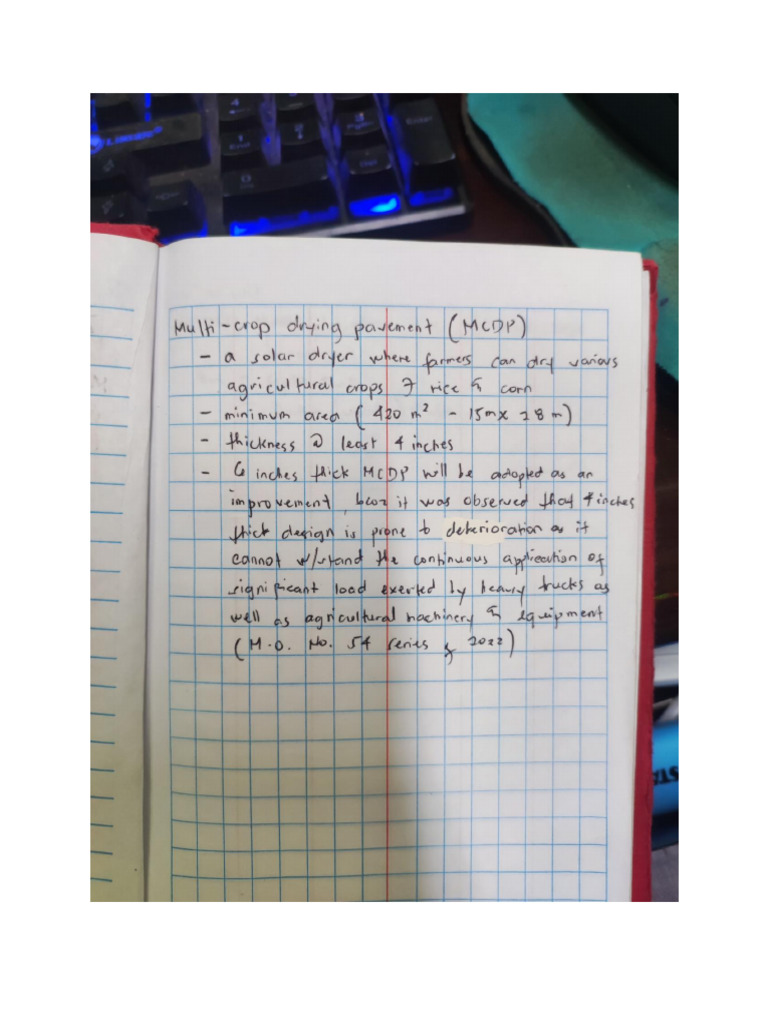 4
1
End
2
3
PgDn
Enter
0
Ins
Del
Multi-crop drying pavement (MCDP)
- a solar dryer where farmers can dry various
agricultural crops of rice & corn
- minimum area (420 m² - 15m x 28 m)
- thickness @ least 4 inches
- 6 inches thick MCDP will be adopted as an
improvement, bcoz it was observed that 4 inches
thick design is prone to deterioration as it
cannot w/stand the continuous application of
significant load exerted by heavy trucks as
well as agricultural machinery & equipment
(M.O. No. 54 series of 2022)
STA